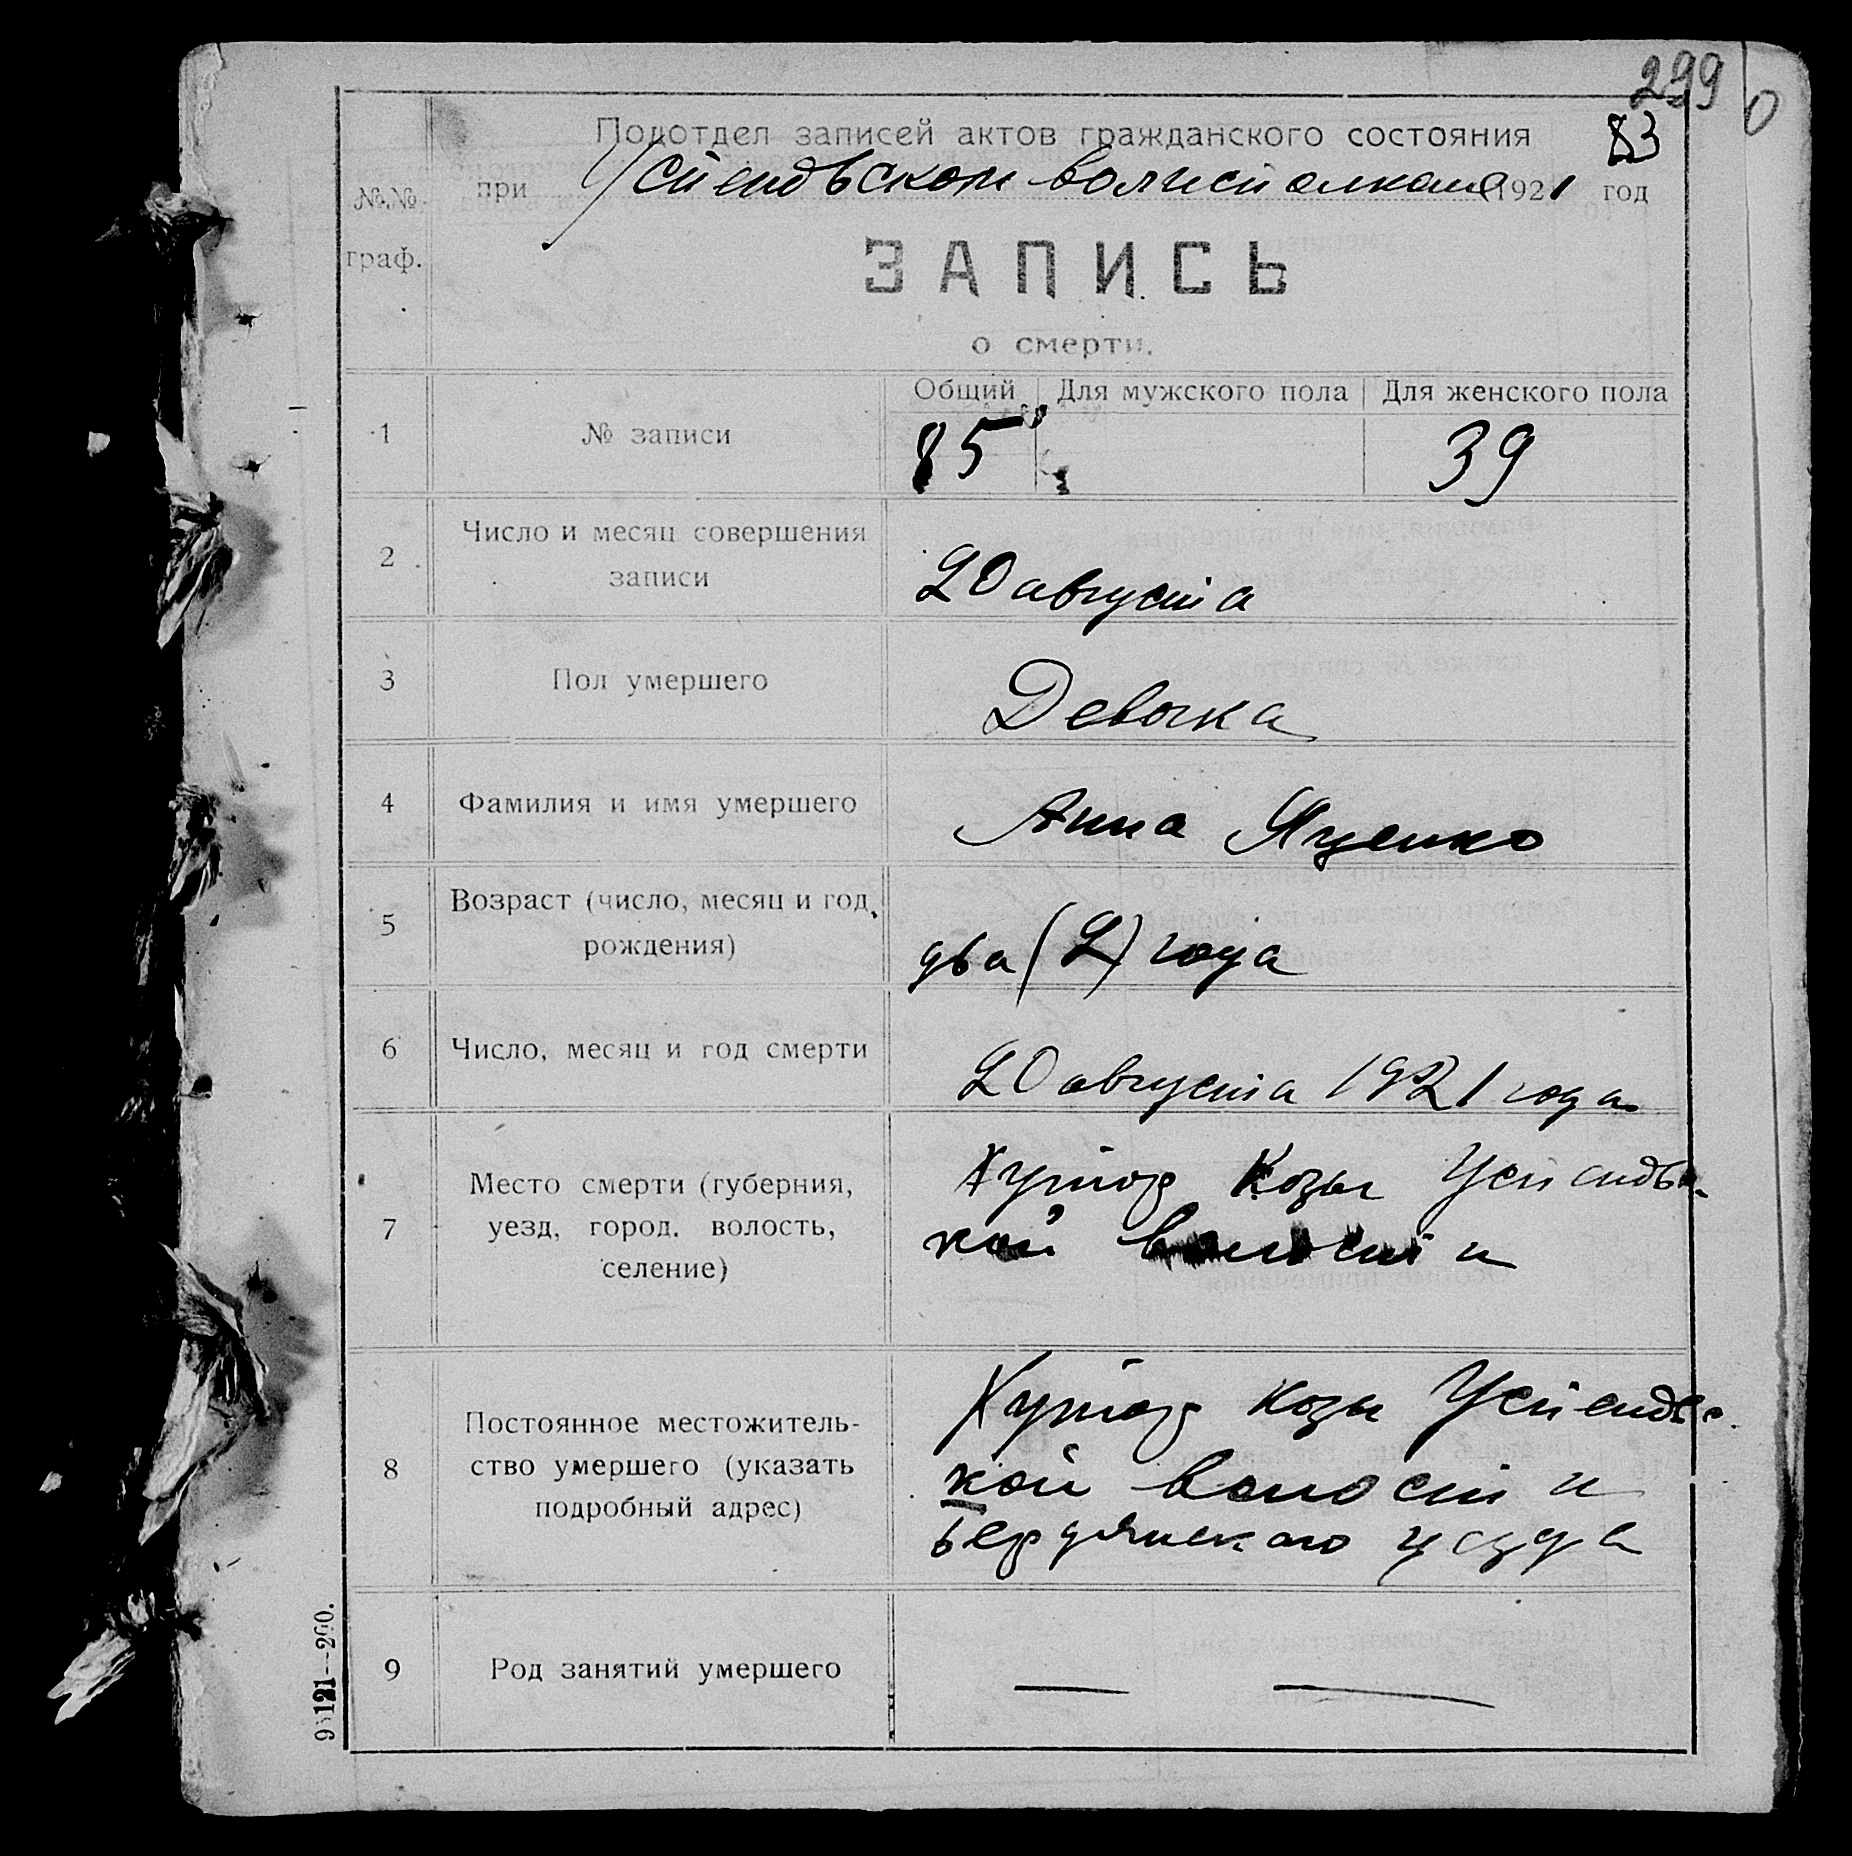 299
83
Подотдел записей актов гражданского состояния
при Успеновском волисполкоме 1921 год
№№ граф.
ЗАПИСЬ
о смерти.
Общий Для мужского пола Для женского пола
1 № записи 85 39
2 Число и месяц совершения
записи
20 августа
3 Пол умершего Девочка
4 Фамилия и имя умершего Анна Яценко
5 Возраст (число, месяц и год
рождения)
два (2) года
6 Число, месяц и год смерти 20 августа 1921 года
7 Место смерти (губерния,
уезд, город, волость,
селение)
Хутор Козы Успеновс-
кой волости
8 Постоянное местожитель-
ство умершего (указать
подробный адрес)
Хутор Козы Успеновс-
кой волости
Бердянского уезда
9 Род занятий умершего — —